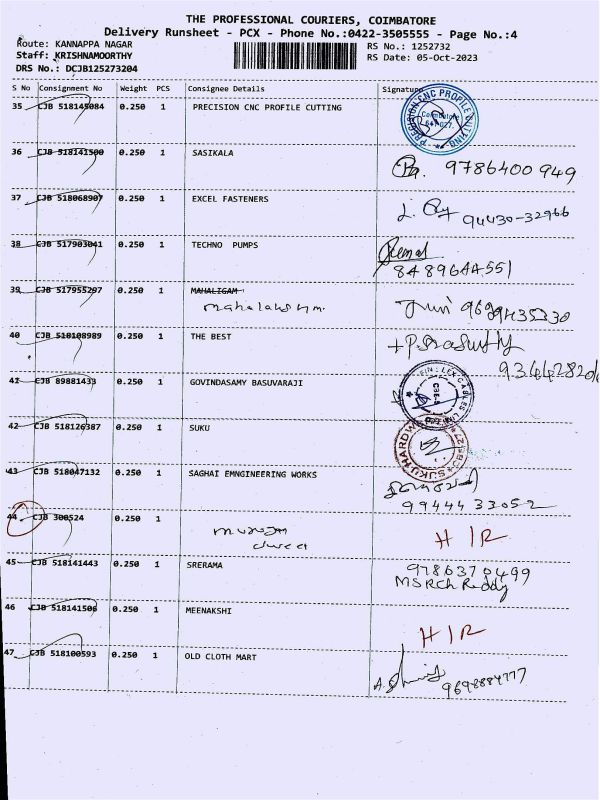 THE PROFESSIONAL COURIERS, COIMBATORE
Delivery Runsheet - PCX - Phone No.:0422-3505555 - Page No.:4
Route: KANNAPPA NAGAR RS No.: 1252732
Staff: KRISHNAMOORTHY RS Date: 05-Oct-2023
DRS No.: DCJB125273204
S No Consignment No Weight PCS Consignee Details Signature
35 CJB 518145084 0.250 1 PRECISION CNC PROFILE CUTTING
PRECISION CNC PROFILE CUTTING
Coimbatore
641 027.
36 CJB 518141500 0.250 1 SASIKALA
9786400949
37 CJB 518068907 0.250 1 EXCEL FASTENERS
94430-32966
38 CJB 517903041 0.250 1 TECHNO PUMPS
8489644551
39 CJB 517955297 0.250 1 MAHALIGAM
40 CJB 518108989 0.250 1 THE BEST
41 CJB 89881433 0.250 1 GOVINDASAMY BASUVARAJI
42 CJB 518126387 0.250 1 SUKU
SUKU HARDWARE
43 CJB 518047132 0.250 1 SAGHAI EMNGINEERING WORKS
9944433052
44 CJB 300524 0.250 1
H I R
45 CJB 518141443 0.250 1 SRERAMA
9786370499
MSRCh Reddy
46 CJB 518141506 0.250 1 MEENAKSHI
H I R
47 CJB 518100593 0.250 1 OLD CLOTH MART